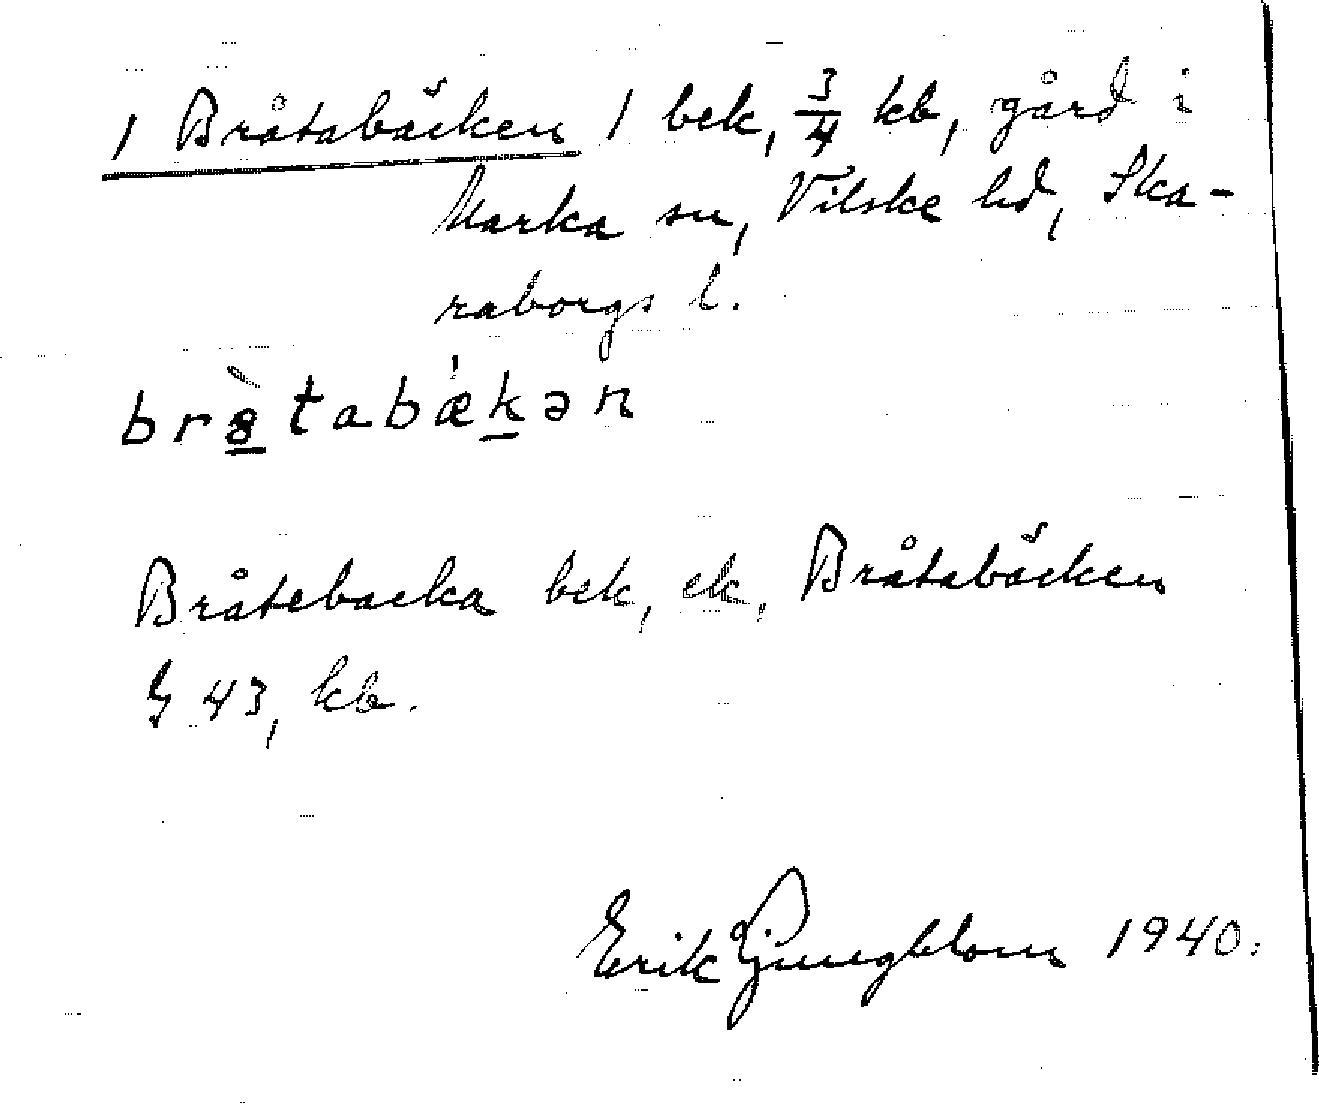 1 Bråtabäcken 1 bek, 3/4 kb, gård i
Marka sn, Vilske hd, Ska-
raborgs l.
brætabǽkən
Bråtebacka bek, ek, Bråtabäcken
G 43, kb.
Erik Ljungblom 1940.